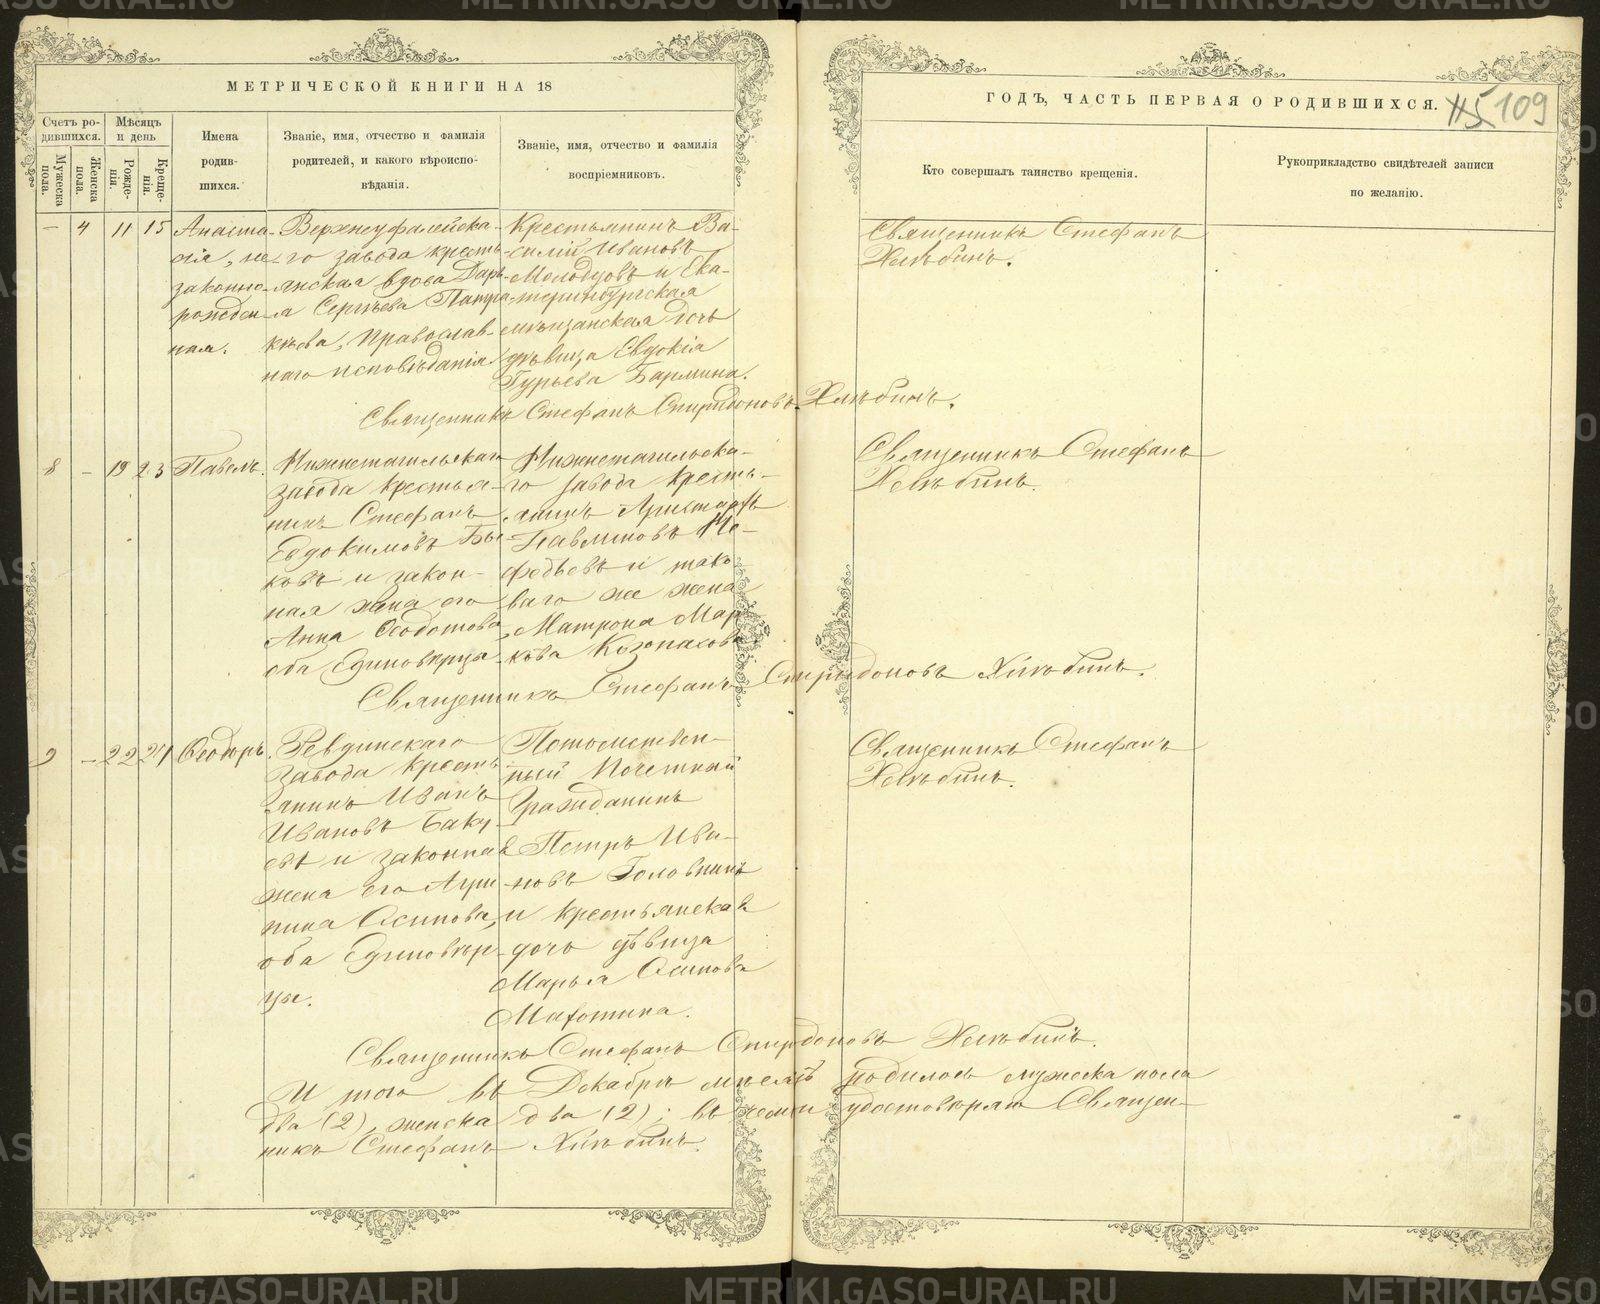 МЕТРИЧЕСКОЙ КНИГИ НА 18
ГОДЪ, ЧАСТЬ ПЕРВАЯ О РОДИВШИХСЯ.
115 109
Счетъ ро-
дившихся.
Мужеска
пола.
Женска
пола.
Мѣсяцъ
и день
Рожде-
нія.
Креще-
нія.
Имена
родив-
шихся.
Званіе, имя, отчество и фамилія
родителей, и какого вѣроиспо-
вѣданія.
Званіе, имя, отчество и фамилія
воспріемниковъ.
Кто совершалъ таинство крещенія.
Рукоприкладство свидѣтелей записи
по желанію.
— 4 11 15
Анаста-
сія, не
законно-
рожден-
ная.
Верхнеуфалейска-
го завода кресть-
янская вдова Дарь-
я Сергѣева Патра-
кѣева, Православ-
наго исповѣданія
Крестьянинъ Ва-
силій Ивановъ
Молодцовъ и Ека-
теринбургская
мѣщанская дочь
дѣвица Евдокія
Гурьева Бармина.
Священникъ Стефанъ
Хлѣбинъ.
Священникъ Стефанъ Спиридоновъ Хлѣбинъ.
8 — 19 23
Павелъ.
Нижнетагильскаго
завода крестья-
нинъ Стефанъ
Евдокимовъ Бы-
ковъ и закон-
ная жена его
Анна Ѳеодотова
оба Единовѣрцы
Нижнетагильска-
го завода кресть-
янинъ Аристархъ
Павлиновъ Ме-
фодьевъ и тако-
ваго же жена
Матрона Мар-
кова Козопасова
Священникъ Стефанъ
Хлѣбинъ.
Священникъ Стефанъ Спиридоновъ Хлѣбинъ.
9 — 22 24
Ѳеодоръ.
Ревдинскаго
завода кресть-
янинъ Иванъ
Ивановъ Баку-
евъ и законная
жена его Агри-
пина Осипова,
оба Единовѣр-
цы.
Потомствен-
ный Почетный
Гражданинъ
Петръ Ива-
новъ Головнинъ
и крестьянская
дочь дѣвица
Марья Осипова
Махотина.
Священникъ Стефанъ
Хлѣбинъ.
Священникъ Стефанъ Спиридоновъ Хлѣбинъ.
Итого въ Декабрѣ мѣсяцѣ родилось мужеска пола
два (2), женска два (2); въ чемъ и удостовѣряю Священ-
никъ Стефанъ Хлѣбинъ.
METRIKI.GASO-URAL.RU